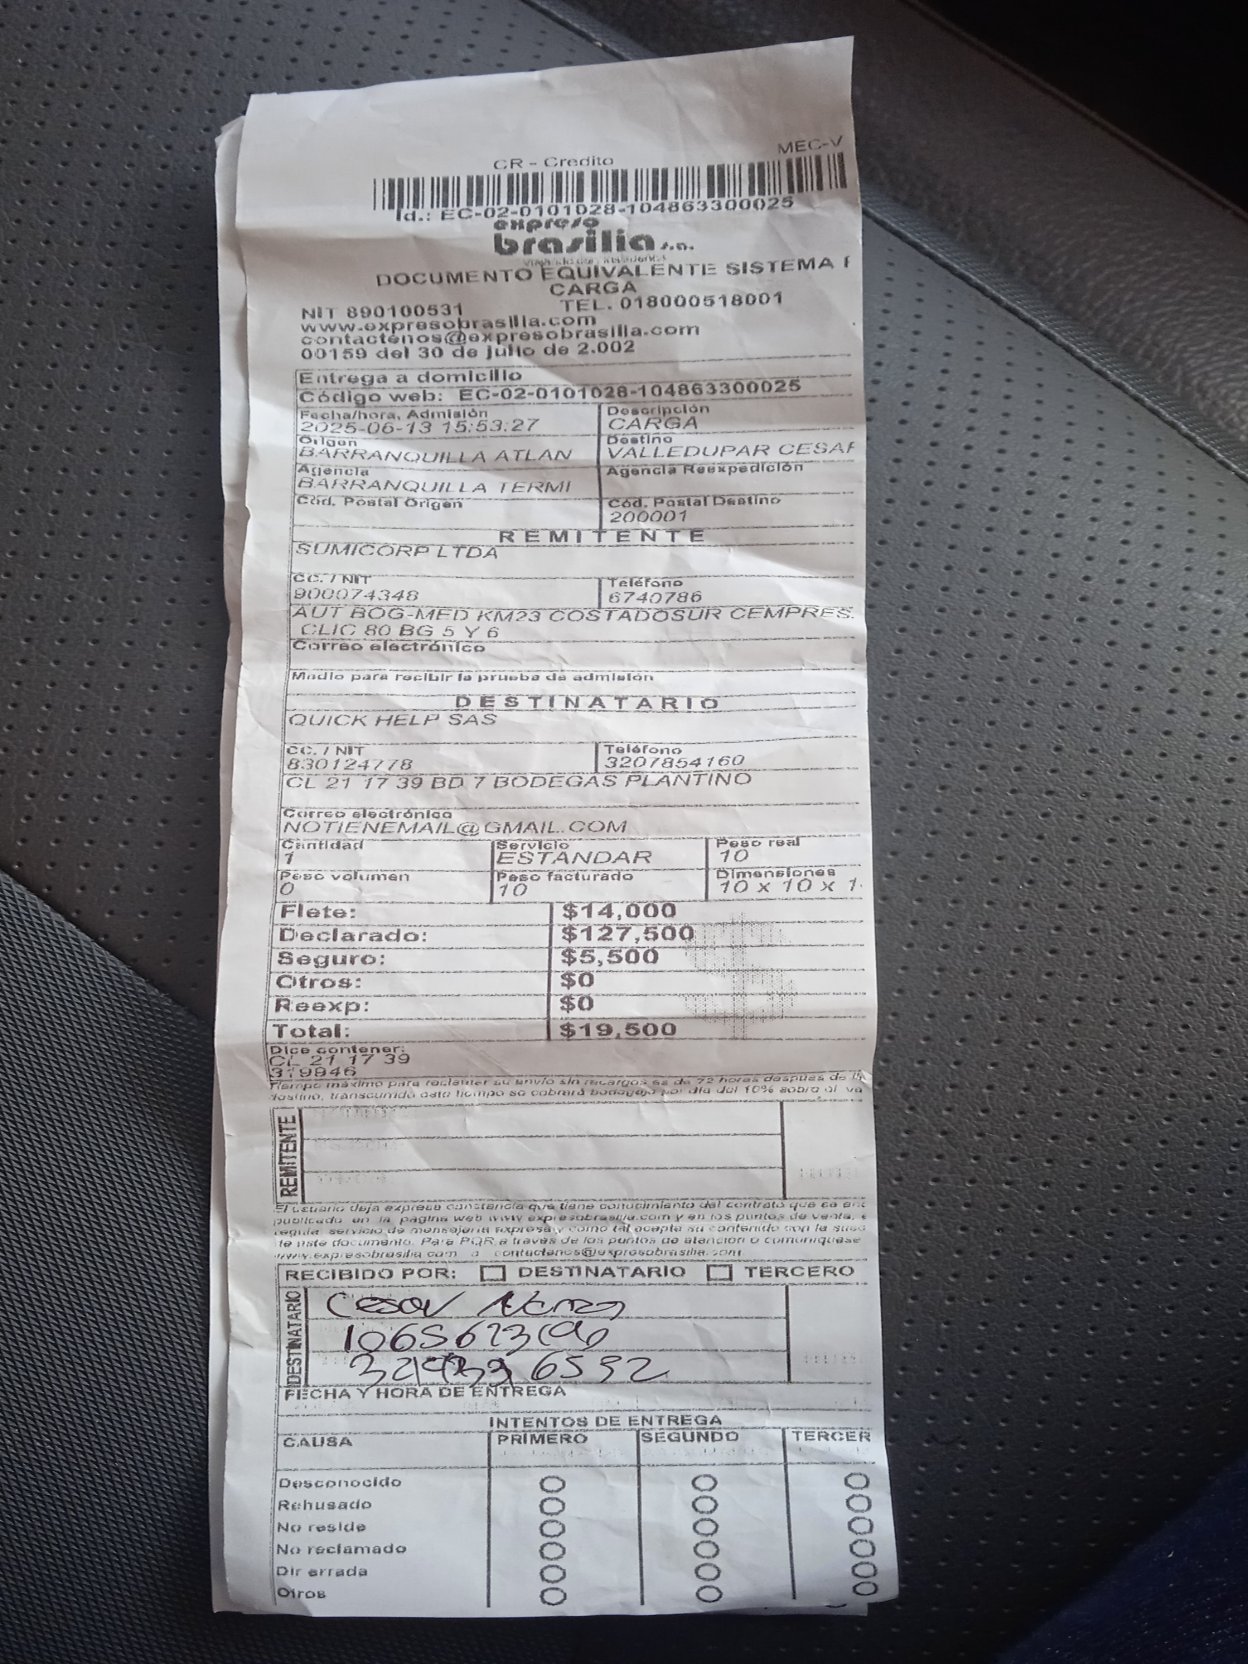 MEC-V
CR - Credito
Id.: EC-02-0101028-104863300025
expreso
brasilia s.a.
DOCUMENTO EQUIVALENTE SISTEMA
CARGA
NIT 890100531 TEL. 018000518001
www.expresobrasilia.com
contactenos@expresobrasilia.com
00159 del 30 de julio de 2.002
Entrega a domicilio
Código web: EC-02-0101028-104863300025
Fecha/hora, Admisión Descripción
2025-06-13 15:53:27 CARGA
Origen Destino
BARRANQUILLA ATLAN VALLEDUPAR CESAR
Agencia Agencia Reexpedición
BARRANQUILLA TERMI
Cód. Postal Origen Cód. Postal Destino
200001
REMITENTE
SUMICORP LTDA
CC. / NIT Teléfono
900074348 6740786
AUT BOG-MED KM23 COSTADOSUR CEMPRES.
CLIC 80 BG 5 Y 6
Correo electrónico
Medio para recibir la prueba de admisión
DESTINATARIO
QUICK HELP SAS
CC. / NIT Teléfono
830124778 3207854160
CL 21 17 39 BD 7 BODEGAS PLANTINO
Correo electrónico
NOTIENEMAIL@GMAIL.COM
Cantidad Servicio Peso real
1 ESTANDAR 10
Peso volumen Peso facturado Dimensiones
0 10 10 x 10 x 1
Flete: $14,000
Declarado: $127,500
Seguro: $5,500
Otros: $0
Reexp: $0
Total: $19,500
Dice contener:
CL 21 17 39
319946
Tiempo máximo para reclamar su envío sin recargos es de 72 horas después de
destino, transcurrido este tiempo se cobrará bodegaje por día del 10% sobre el va
REMITENTE
El usuario deja expresa constancia que tiene conocimiento del contrato que se
publicado en la página web www.expresobrasilia.com y en los puntos de venta,
regula servicio de mensajería expresa y como tal acepta su contenido con la
de este documento. Para PQR a través de los puntos de atención o comuníquese
www.expresobrasilia.com a contactenos@expresobrasilia.com
RECIBIDO POR: DESTINATARIO TERCERO
DESTINATARIO
Cesar
6592
FECHA Y HORA DE ENTREGA
INTENTOS DE ENTREGA
CAUSA PRIMERO SEGUNDO TERCER
Desconocido
Rehusado
No reside
No reclamado
Dir errada
Otros